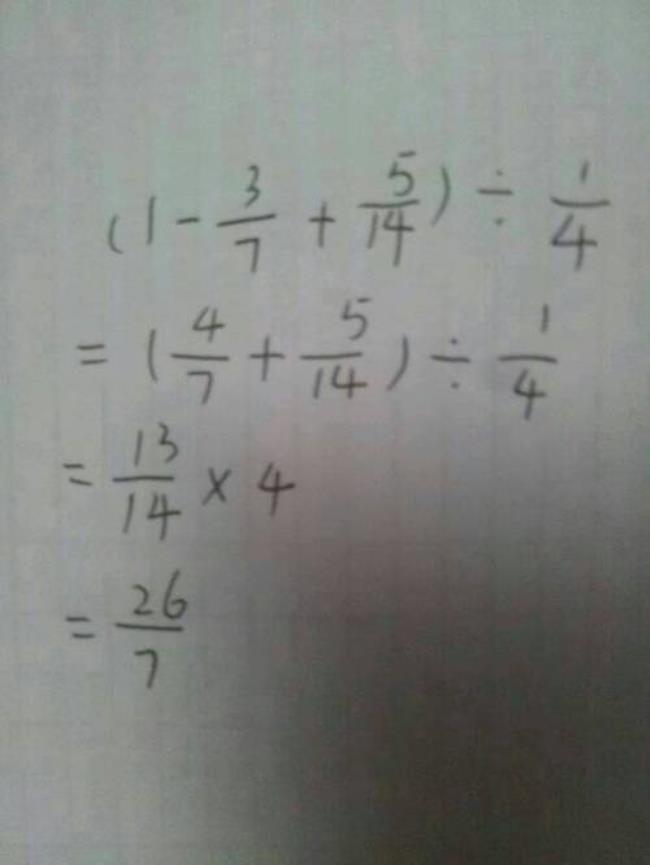 (1 - 3/7 + 5/14) ÷ 1/4
= (4/7 + 5/14) ÷ 1/4
= 13/14 × 4
= 26/7